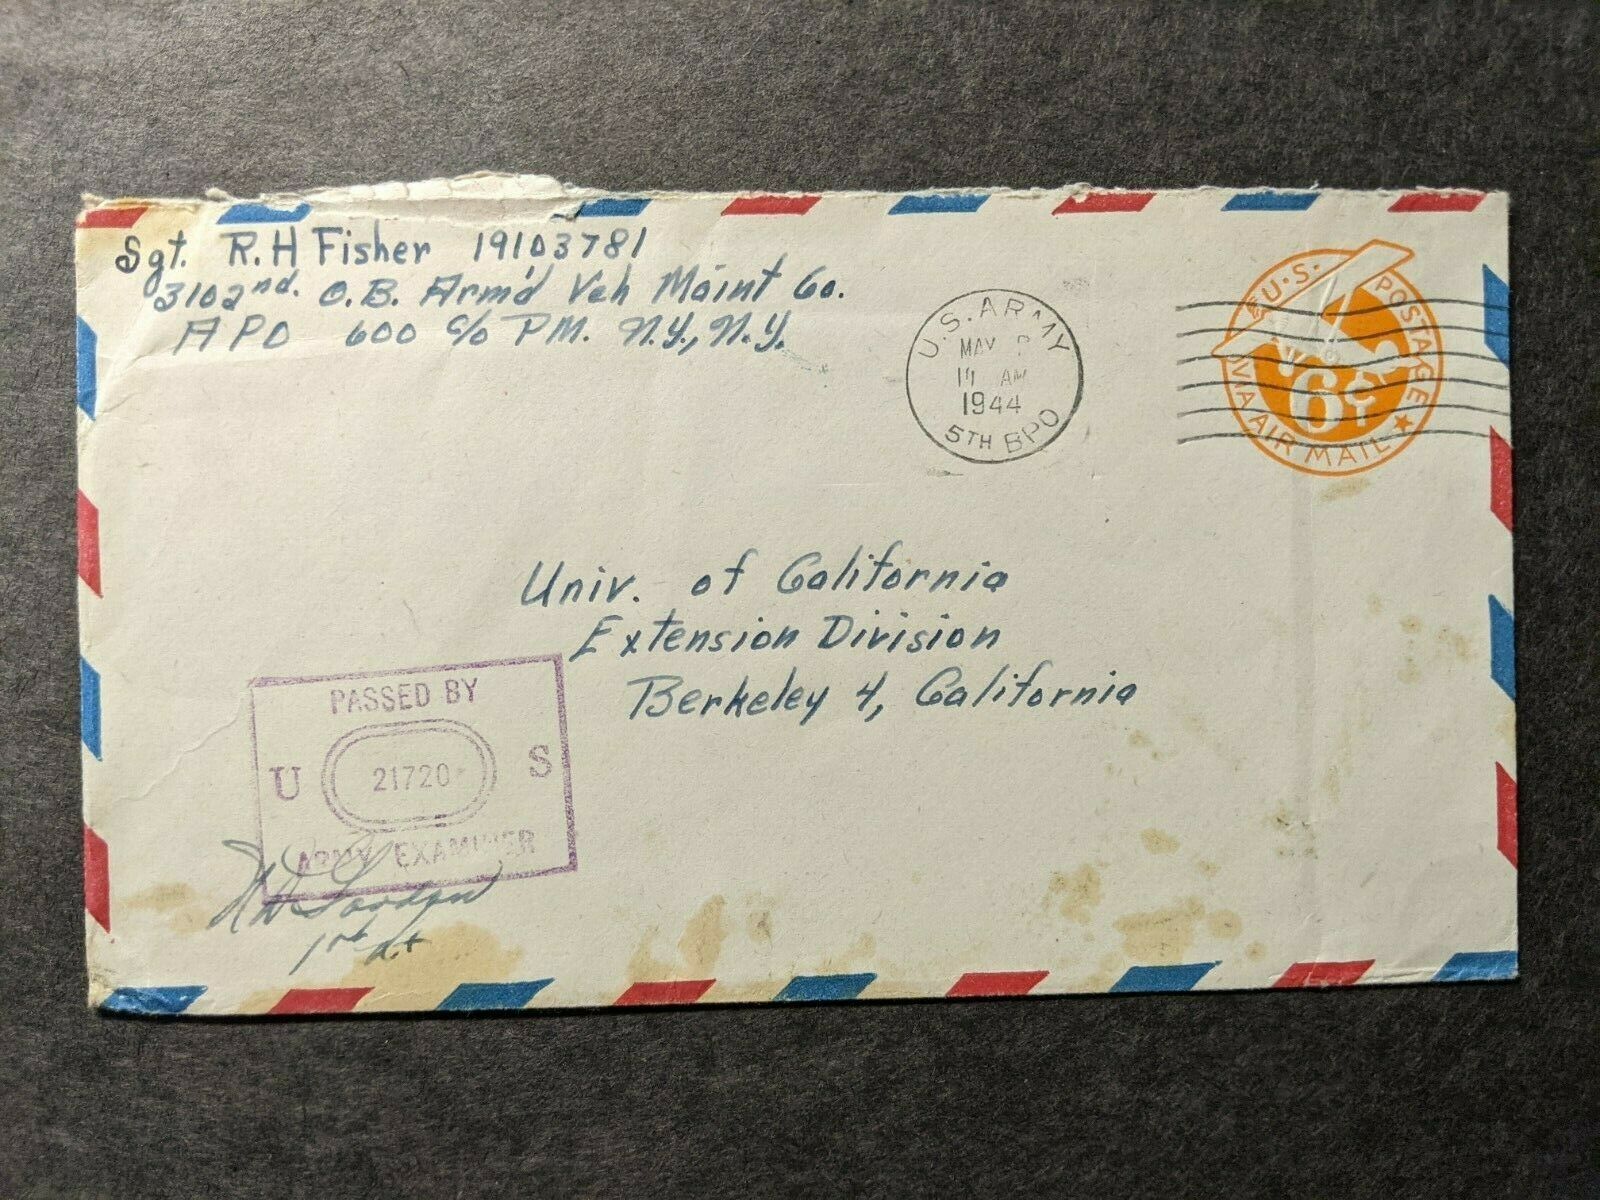 Sgt. R.H Fisher 19103781
3102nd. O.B. Arm'd Veh Maint Co.
APO 600 c/o P.M. N.Y., N.Y.
U.S. ARMY
MAY
AM
1944
5TH BPO
U.S. POSTAGE
6¢
VIA AIR MAIL
Univ. of California
Extension Division
Berkeley 4, California
PASSED BY
U 21720 S
ARMY EXAMINER
1st Lt